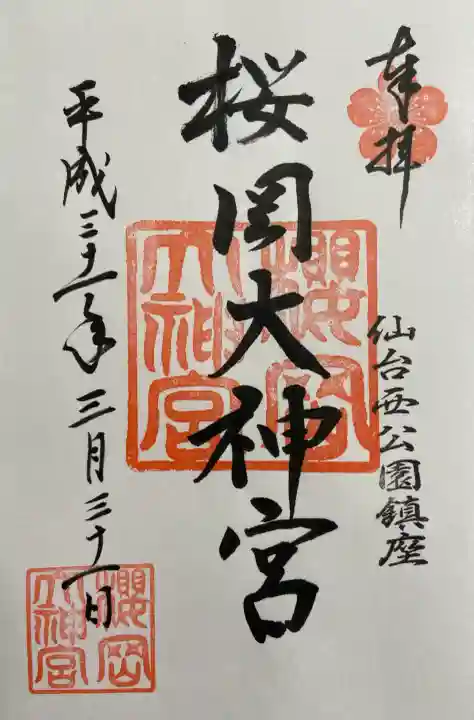 奉拝
仙台西公園鎮座
桜岡大神宮
櫻岡
大神宮
平成三十一年三月三十一日
櫻岡
大神宮